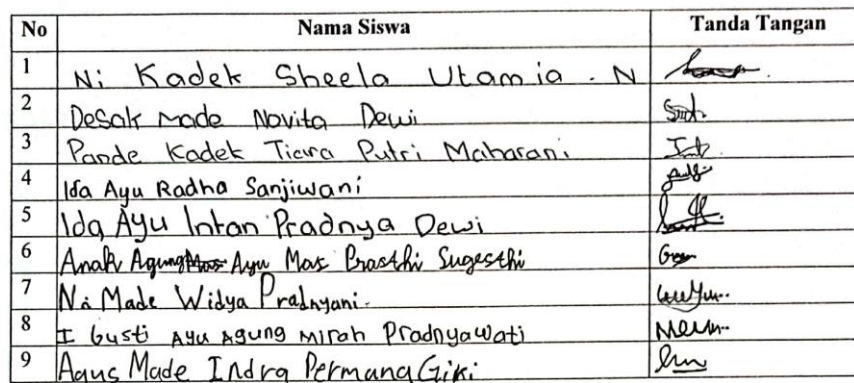 No Nama Siswa Tanda Tangan
1 Ni Kadek Sheela Utamia . N
2 Desak Made Novita Dewi
3 Pande Kadek Tiara Putri Maharani
4 Ida Ayu Radha Sanjiwani
5 Ida Ayu Intan Pradnya Dewi
6 Anak Agung Ayu Mas Prasthi Sugesthi
7 Ni Made Widya Pradnyani.
8 I Gusti Ayu Agung Mirah Pradnyawati
9 Agus Made Indra Permana Giri